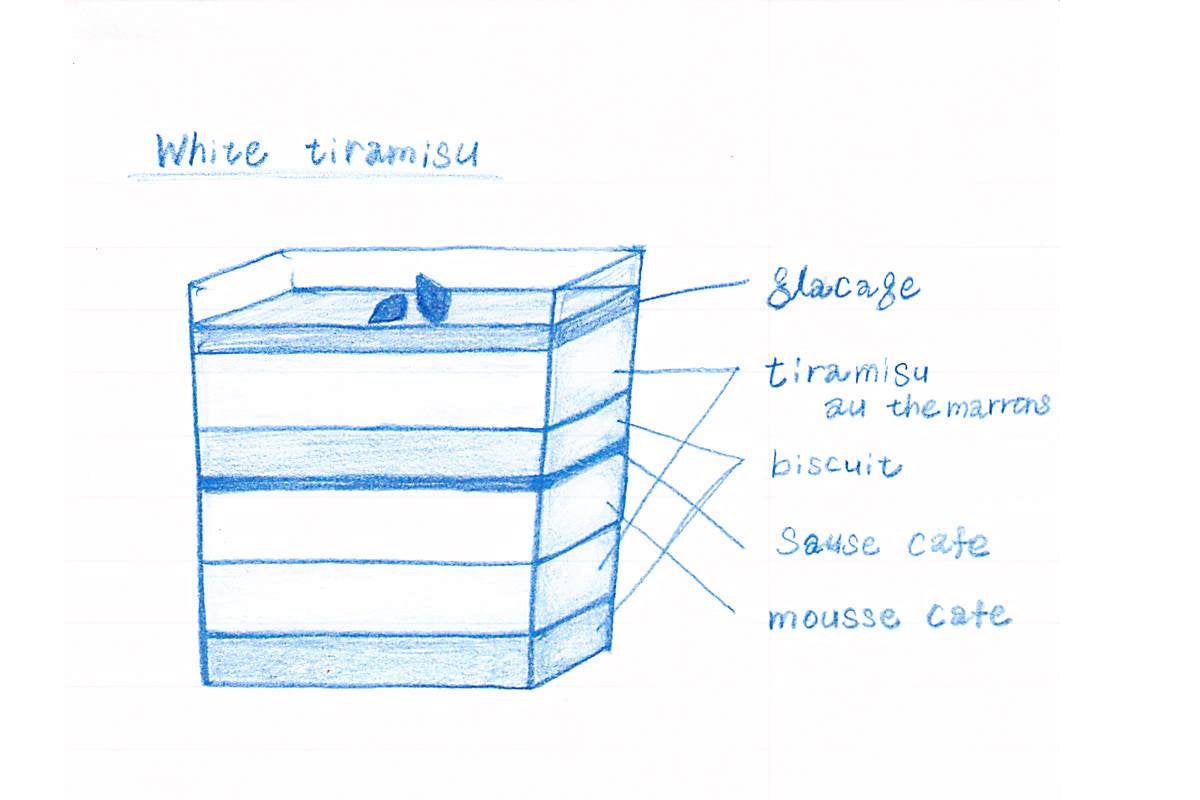 White tiramisu
glacage
tiramisu
au the marrons
biscuit
Sause cafe
mousse cafe